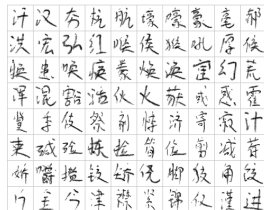 汗 汉 夯 杭 航 壕 嚎 豪 毫 郝
洪 宏 弘 红 喉 侯 猴 吼 厚 候
焕 患 唤 痪 豢 焕 涣 宦 幻 荒
浑 混 豁 活 伙 火 获 或 惑 霍
季 伎 祭 剂 悸 济 寄 寂 计
柬 碱 拣 捡 简 俭 剪 减 荐
娇 嚼 搅 铰 矫 侥 脚 狡 角 饺
巾 筋 今 津 襟 紧 锦 仅 谨 进